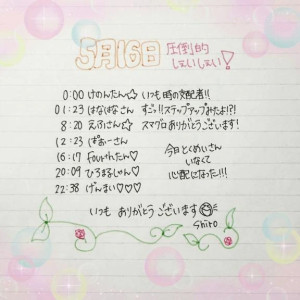 5月16日 圧倒的
しぇいしぇい!
0:00 けのんたん☆ いつも時の支配者!!
01:23 はなはなさん すごっ!!ステップアップみたよ!?!
8:20 えふさん☆ スマグロありがとうございます!
12:23 ぱおーさん
16:17 fourthたん♡
20:09 ひろまるしゃん♡
22:38 げんまい♡♡♡
今日とくめいさん
いなくて
心配になった!!!
いつも ありがとうございます
Shiro